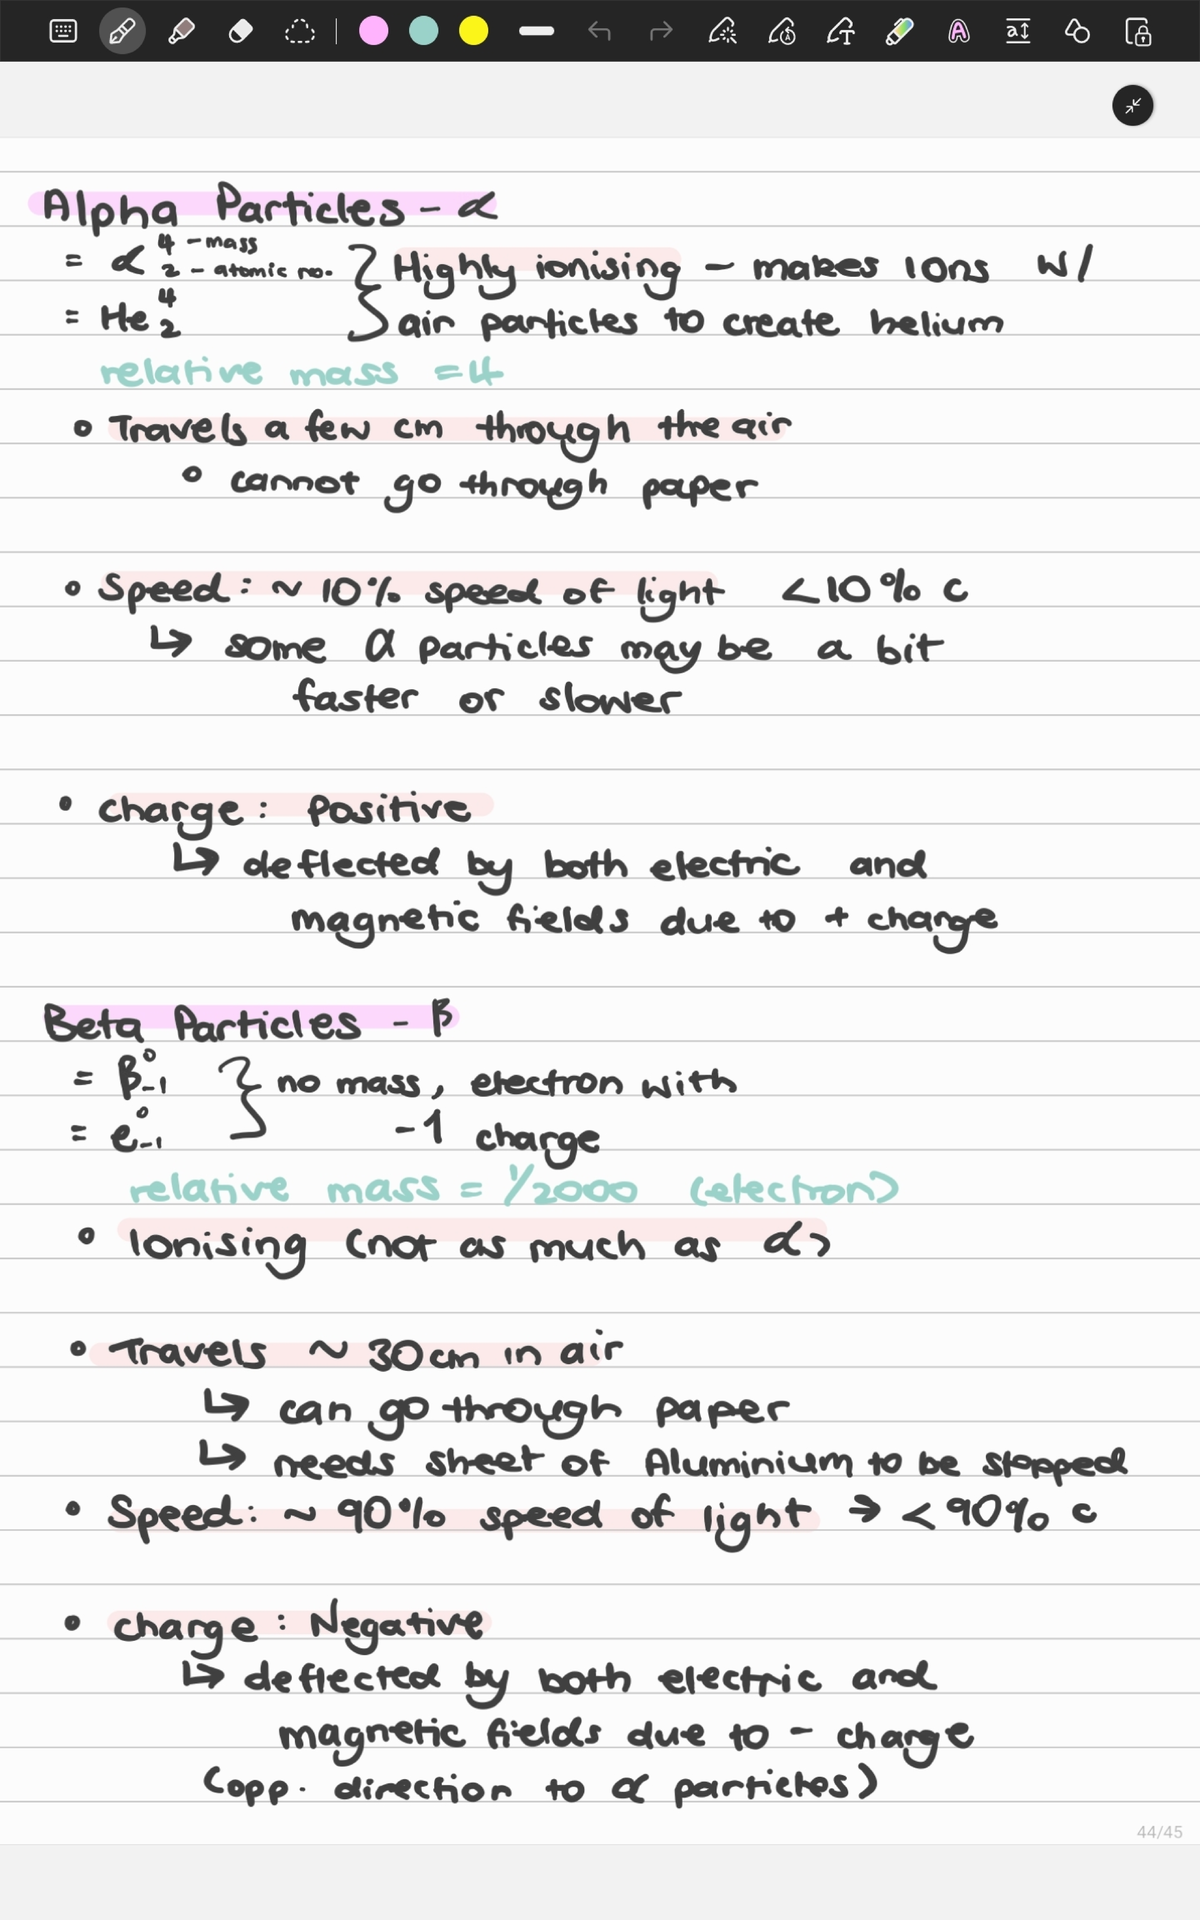 Alpha Particles - α
= α 4 - mass
2 - atomic no.
Highly ionising - makes ions w/
= He 4 2
air particles to create helium
relative mass = 4
Travels a few cm through the air
cannot go through paper
Speed: ~ 10% speed of light <10% c
↳ some α particles may be a bit
faster or slower
• charge: Positive
↳ deflected by both electric and
magnetic fields due to + charge
Beta Particles - β
= β 0 -1 no mass, electron with
= e 0 -1 -1 charge
relative mass = 1/2000 (electron)
Ionising (not as much as α)
• Travels ~ 30cm in air
↳ can go through paper
↳ needs sheet of Aluminium to be stopped
• Speed: ~ 90% speed of light → <90% c
• charge: Negative
↳ deflected by both electric and
magnetic fields due to - charge
(opp. direction to α particles)
44/45